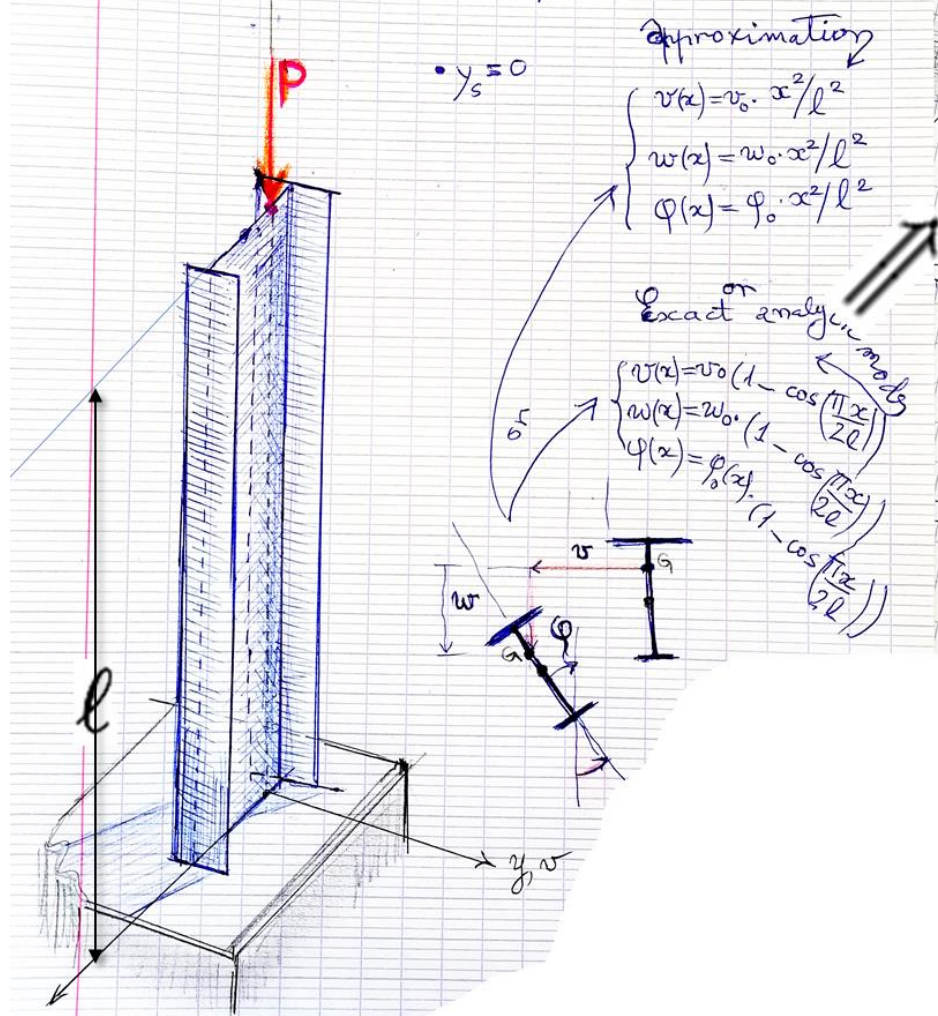 P
• yₛ = 0
approximation
v(x) = v₀ · x²/l²
w(x) = w₀ · x²/l²
φ(x) = φ₀ · x²/l²
or
Exact
mode
v(x) = v₀ (1 - cos(πx/2l))
w(x) = w₀ · (1 - cos(πx/2l))
φ(x) = φ₀(x) · (1 - cos(πx/2l))
or
v
G
w
φ
G
l
y, v